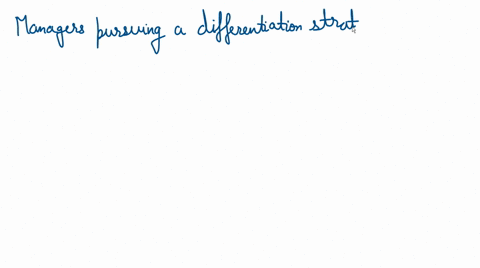 Managers pursuing a differentiation strat